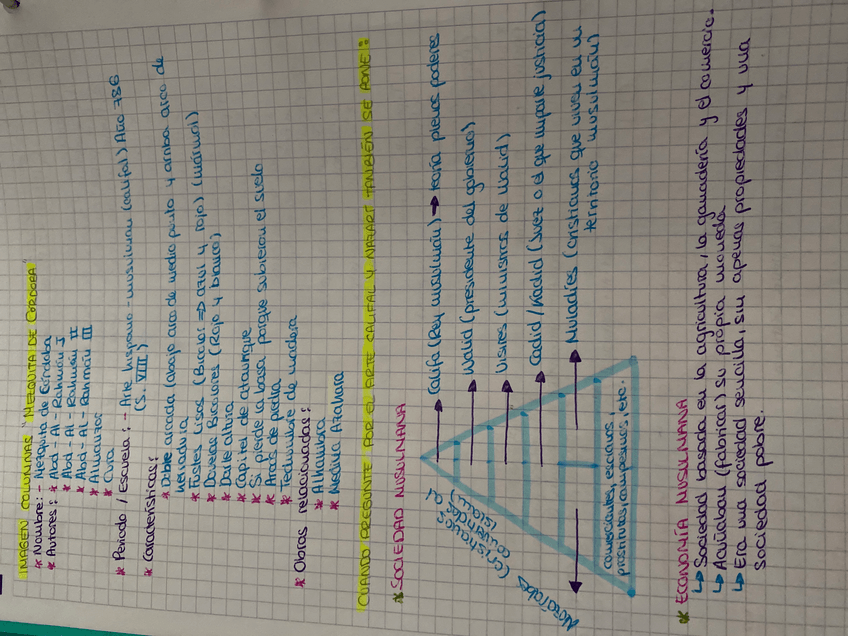 IMAGEN COLUMNAS "MEZQUITA DE CÓRDOBA"
* Nombre: - Mezquita de Córdoba
* Autores: * Abd - Al - Rahmán I
* Abd - Al - Rahmán II
* Abd - Al - Rahmán III
* Almanzor
* Cura
* Periodo / Escuela: - Arte hispano-musulmán (califal) Año 786
(S. VIII)
* Características:
* Doble arcada (abajo arco de medio punto y arriba arco de
herradura
* Fustes lisos (Bicolor => azul y rojo) (mármol)
* Dovelas Bicolores (Rojo y blanco)
* Dar altura
* Capitel de ataurique
* Si pierde la basa porque subieron el suelo
* Arcos de piedra
* Techumbre de madera
* Obras relacionadas:
* Alhambra
* Medina Azahara
CUANDO PREGUNTE POR EL ARTE CALIFAL Y NAZARÍ TAMBIÉN SE PONE:
* SOCIEDAD MUSULMANA
→ Califa (Rey musulmán) → tenía plenos poderes
→ Walid (presidente del gobierno)
→ Visires (ministros de Walid)
→ Cadid / Kadid (Juez o el que imparte justicia)
→ Muladíes (cristianos que viven en un
territorio musulmán)
Mozárabes (cristianos
convertidos al
islam)
comerciantes, esclavos,
prostitutas, campesinos, etc.
* ECONOMÍA MUSULMANA
↳ Sociedad basada en la agricultura, la ganadería y el comercio.
↳ Acuñaban (fabricar) su propia moneda
↳ Era una sociedad sencilla, sin apenas propiedades y una
sociedad pobre.